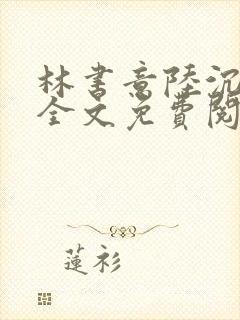 林書意陸沉
全文免費閱
蓮衫